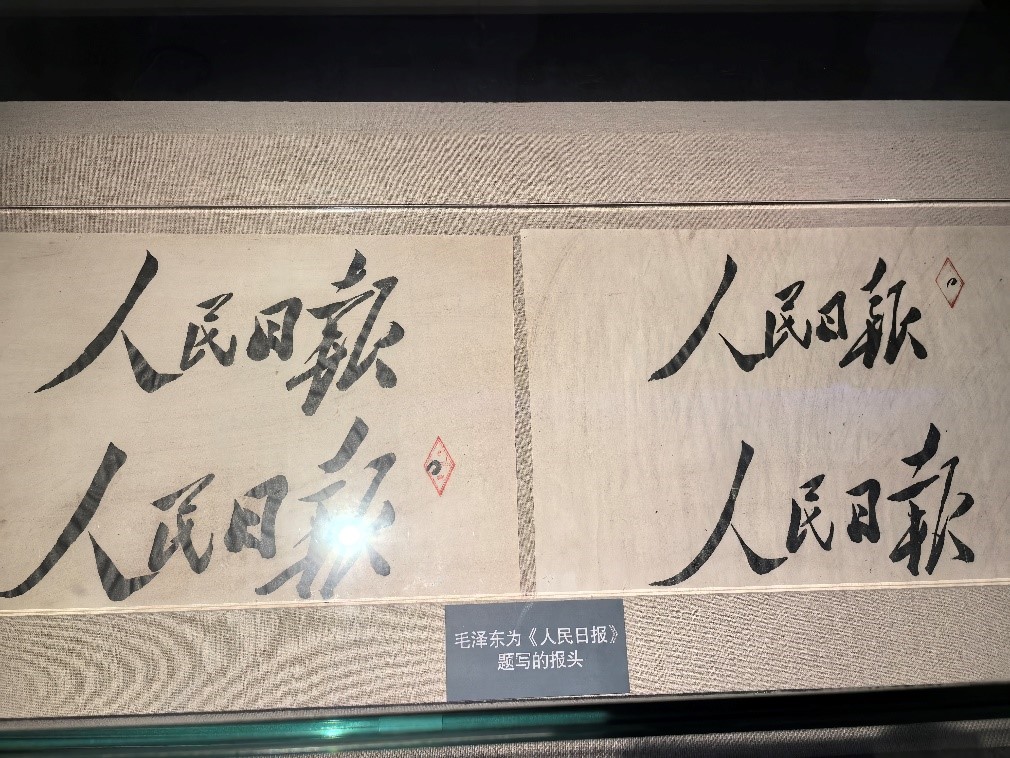 人民日報
人民日報
人民日報
人民日報
毛泽东为《人民日报》
题写的报头